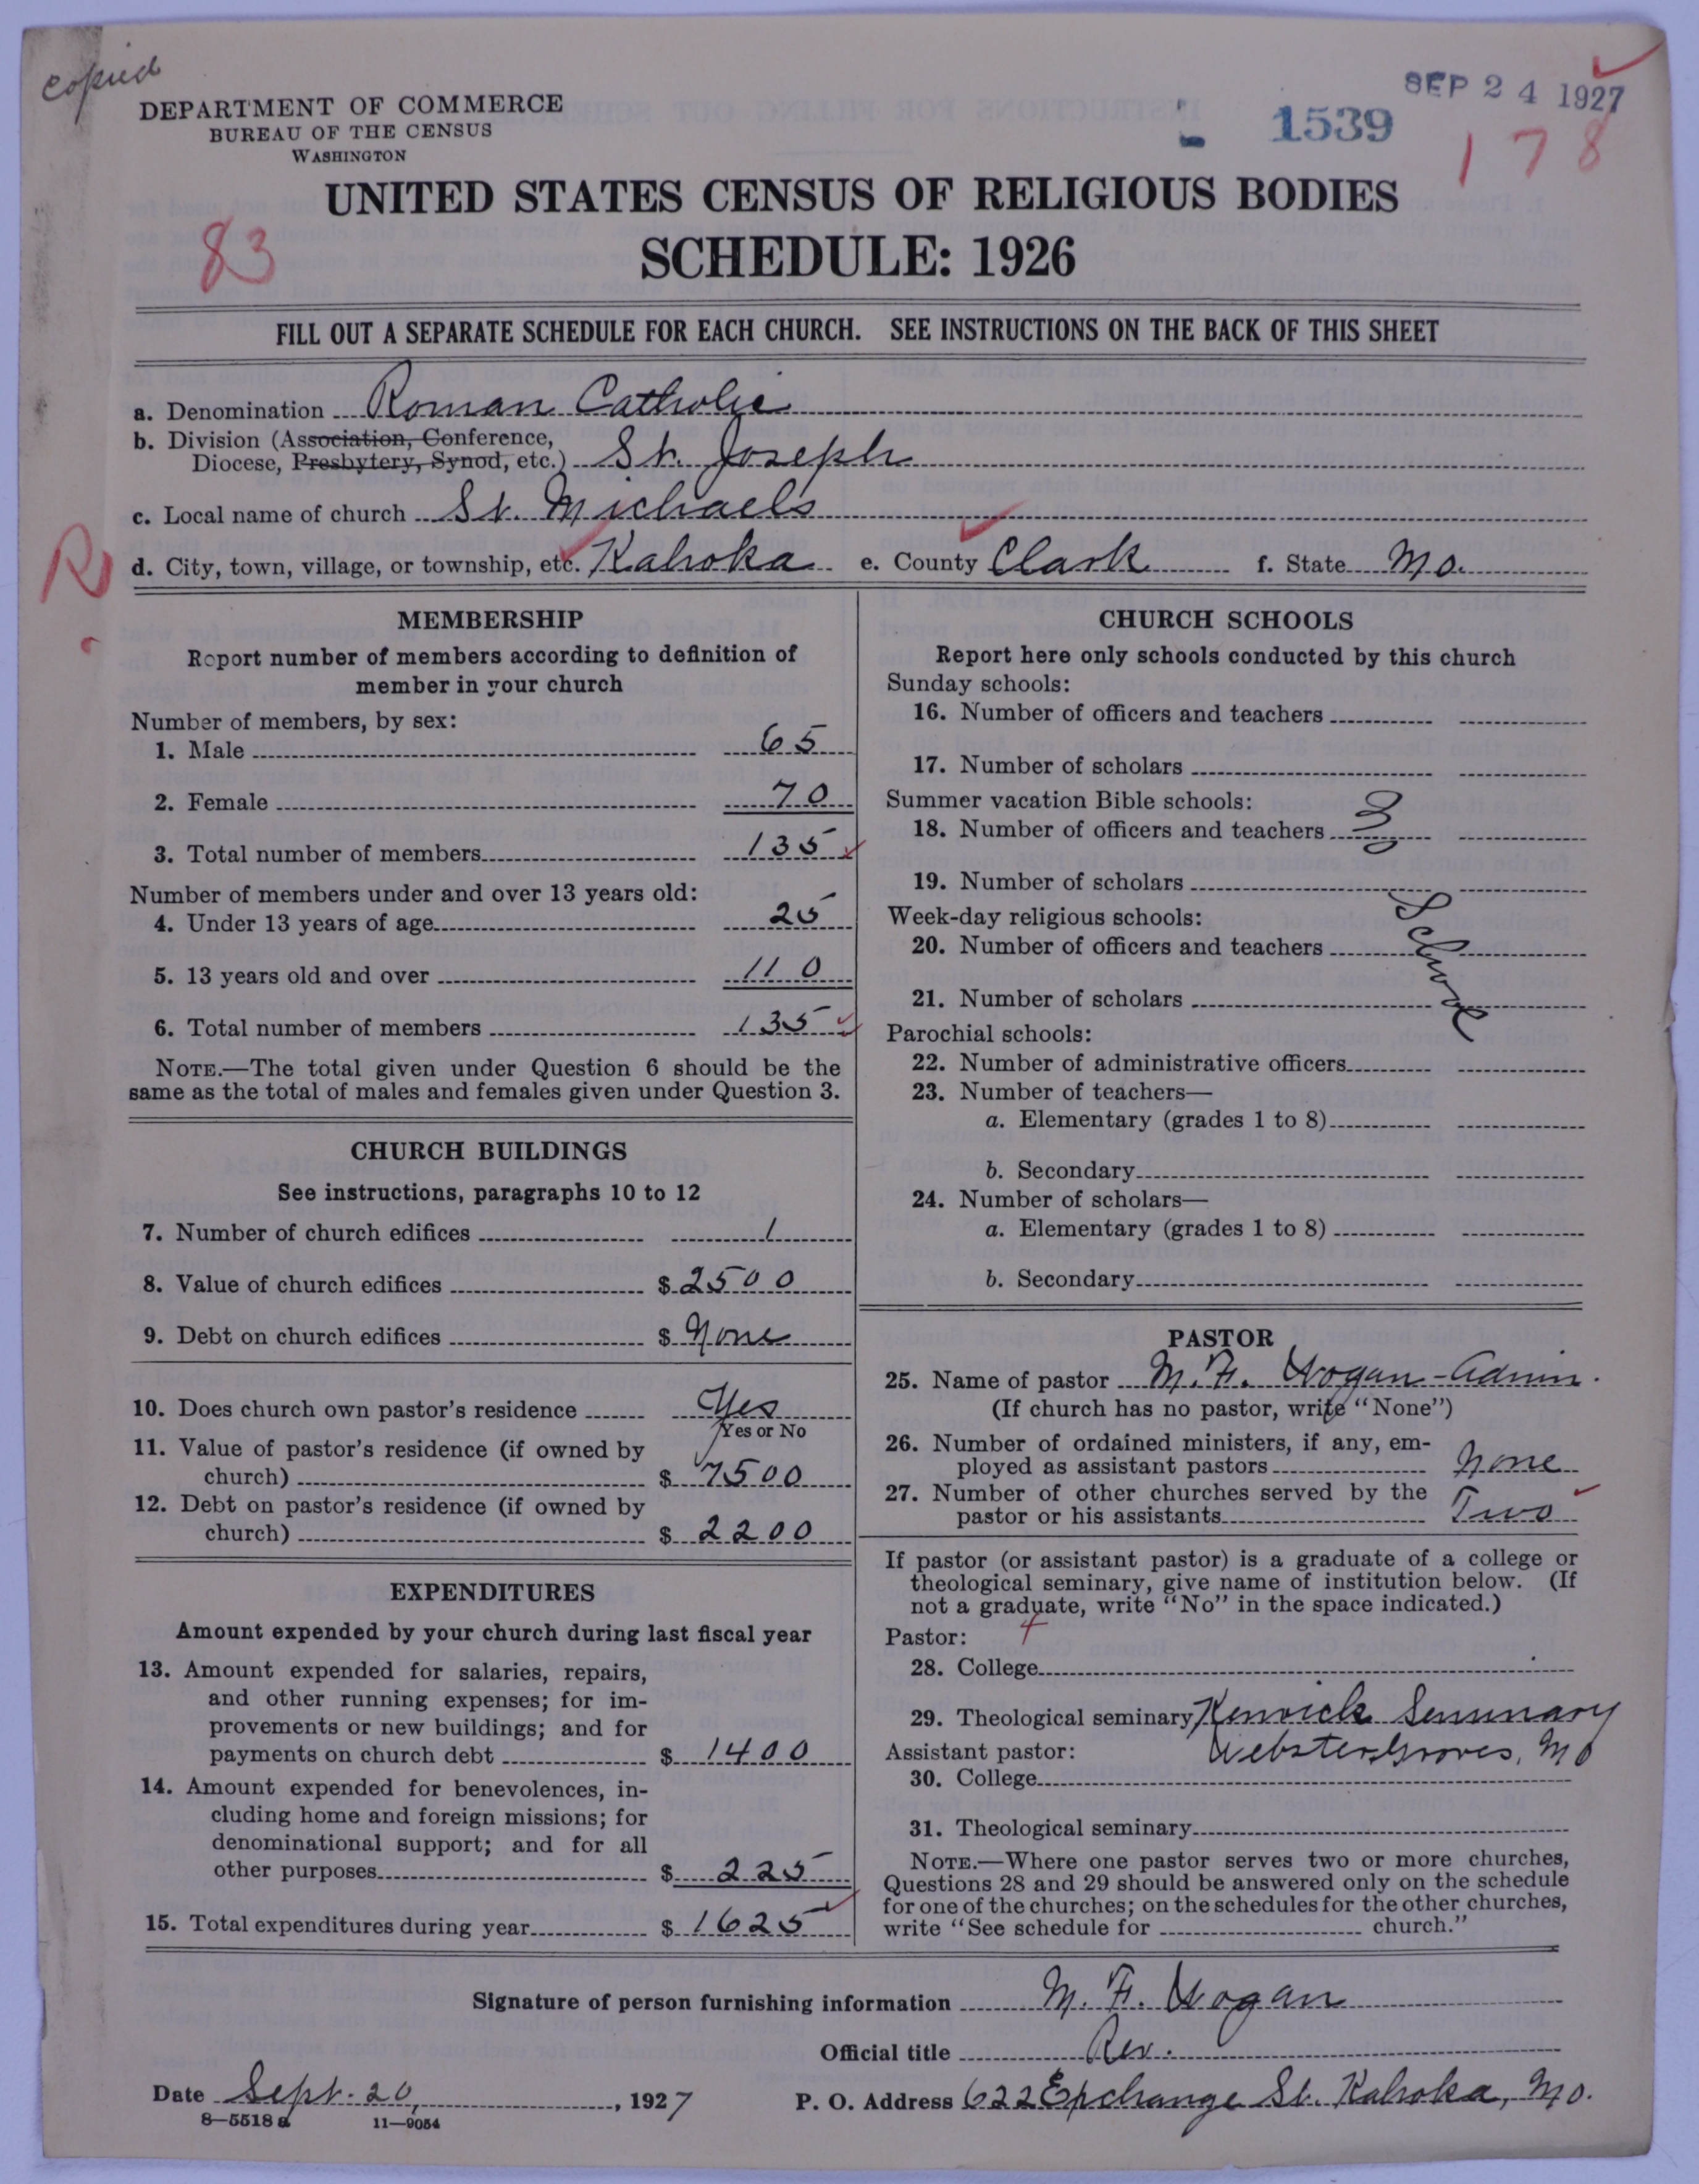 copied
SEP 24 1927
DEPARTMENT OF COMMERCE
BUREAU OF THE CENSUS
WASHINGTON
1539
178
UNITED STATES CENSUS OF RELIGIOUS BODIES
83
SCHEDULE: 1926
FILL OUT A SEPARATE SCHEDULE FOR EACH CHURCH. SEE INSTRUCTIONS ON THE BACK OF THIS SHEET
a. Denomination Roman Catholic
b. Division (Association, Conference,
Diocese, Presbytery, Synod, etc.) St. Joseph
c. Local name of church St. Michaels
R
d. City, town, village, or township, etc. Kahoka e. County Clark f. State Mo.
MEMBERSHIP
Report number of members according to definition of
member in your church
Number of members, by sex:
1. Male 65
2. Female 70
3. Total number of members 135
Number of members under and over 13 years old:
4. Under 13 years of age 25
5. 13 years old and over 110
6. Total number of members 135
NOTE.—The total given under Question 6 should be the
same as the total of males and females given under Question 3.
CHURCH BUILDINGS
See instructions, paragraphs 10 to 12
7. Number of church edifices 1
8. Value of church edifices $ 2500
9. Debt on church edifices $ None
10. Does church own pastor's residence Yes
Yes or No
11. Value of pastor's residence (if owned by
church) $ 7500
12. Debt on pastor's residence (if owned by
church) $ 2200
EXPENDITURES
Amount expended by your church during last fiscal year
13. Amount expended for salaries, repairs,
and other running expenses; for im-
provements or new buildings; and for
payments on church debt $ 1400
14. Amount expended for benevolences, in-
cluding home and foreign missions; for
denominational support; and for all
other purposes $ 225
15. Total expenditures during year $ 1625
CHURCH SCHOOLS
Report here only schools conducted by this church
Sunday schools:
16. Number of officers and teachers
17. Number of scholars
Summer vacation Bible schools:
18. Number of officers and teachers
19. Number of scholars
Week-day religious schools:
20. Number of officers and teachers
21. Number of scholars
School
Parochial schools:
22. Number of administrative officers
23. Number of teachers—
a. Elementary (grades 1 to 8)
b. Secondary
24. Number of scholars—
a. Elementary (grades 1 to 8)
b. Secondary
PASTOR
25. Name of pastor M. F. Wogan - Admin.
(If church has no pastor, write "None")
26. Number of ordained ministers, if any, em-
ployed as assistant pastors None
27. Number of other churches served by the
pastor or his assistants Two
If pastor (or assistant pastor) is a graduate of a college or
theological seminary, give name of institution below. (If
not a graduate, write "No" in the space indicated.)
Pastor: 4
28. College
29. Theological seminary Kenrick Seminary
Assistant pastor: Webster Groves, Mo
30. College
31. Theological seminary
NOTE.—Where one pastor serves two or more churches,
Questions 28 and 29 should be answered only on the schedule
for one of the churches; on the schedules for the other churches,
write "See schedule for church."
Signature of person furnishing information M. F. Wogan
Official title Rev.
Date Sept. 20, 1927 P. O. Address 622 Exchange St. Kahoka, Mo.
8—5518 a 11—9054